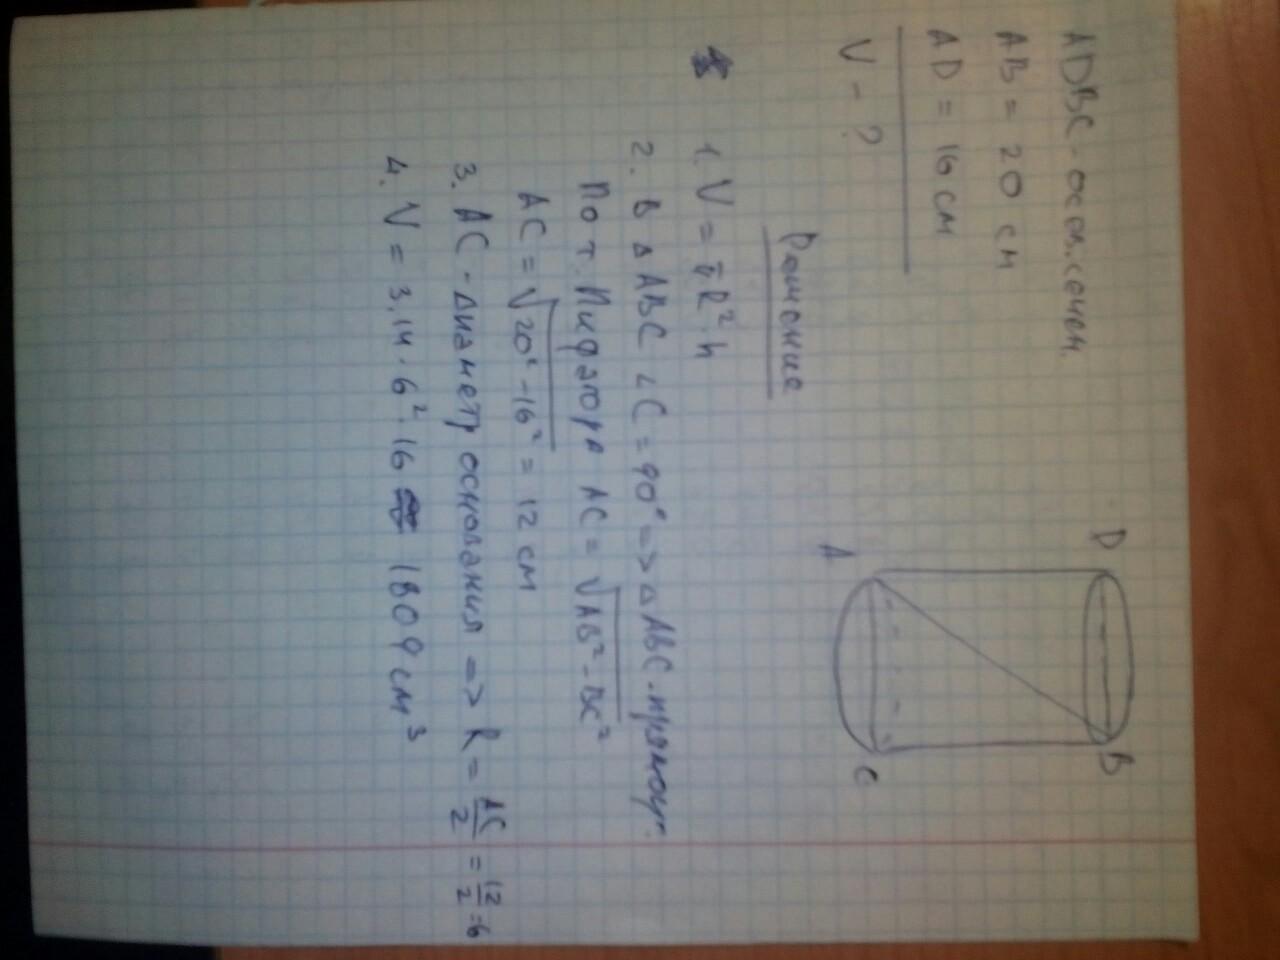 ADBC - осев. сечен.
AB = 20 см
AD = 16 см
V - ?
D
B
A
C
Решение
1. V = πR²·h
2. В △ABC ∠C = 90° => △ABC - прямоуг.
По т. Пифагора AC = √AB² - BC²
AC = √20² - 16² = 12 см
3. AC - диаметр основания => R = AC/2 = 12/2 = 6
4. V = 3,14 · 6² · 16 1809 см³